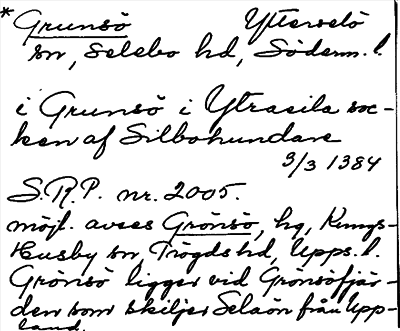 * Grunsö Ytterselö
sn, Selebo hd, Söderm. l.
i Grunsö i Ytrasila soc-
ken af Silbohundare
3/3 1384
S.R.P. nr. 2005.
möjl. avses Grönsö, hg, Kungs-
Husby sn, Trögds hd, Upps. l.
Grönsö ligger vid Grönsöfjär-
den som skiljer Selaön från Upp-
land.